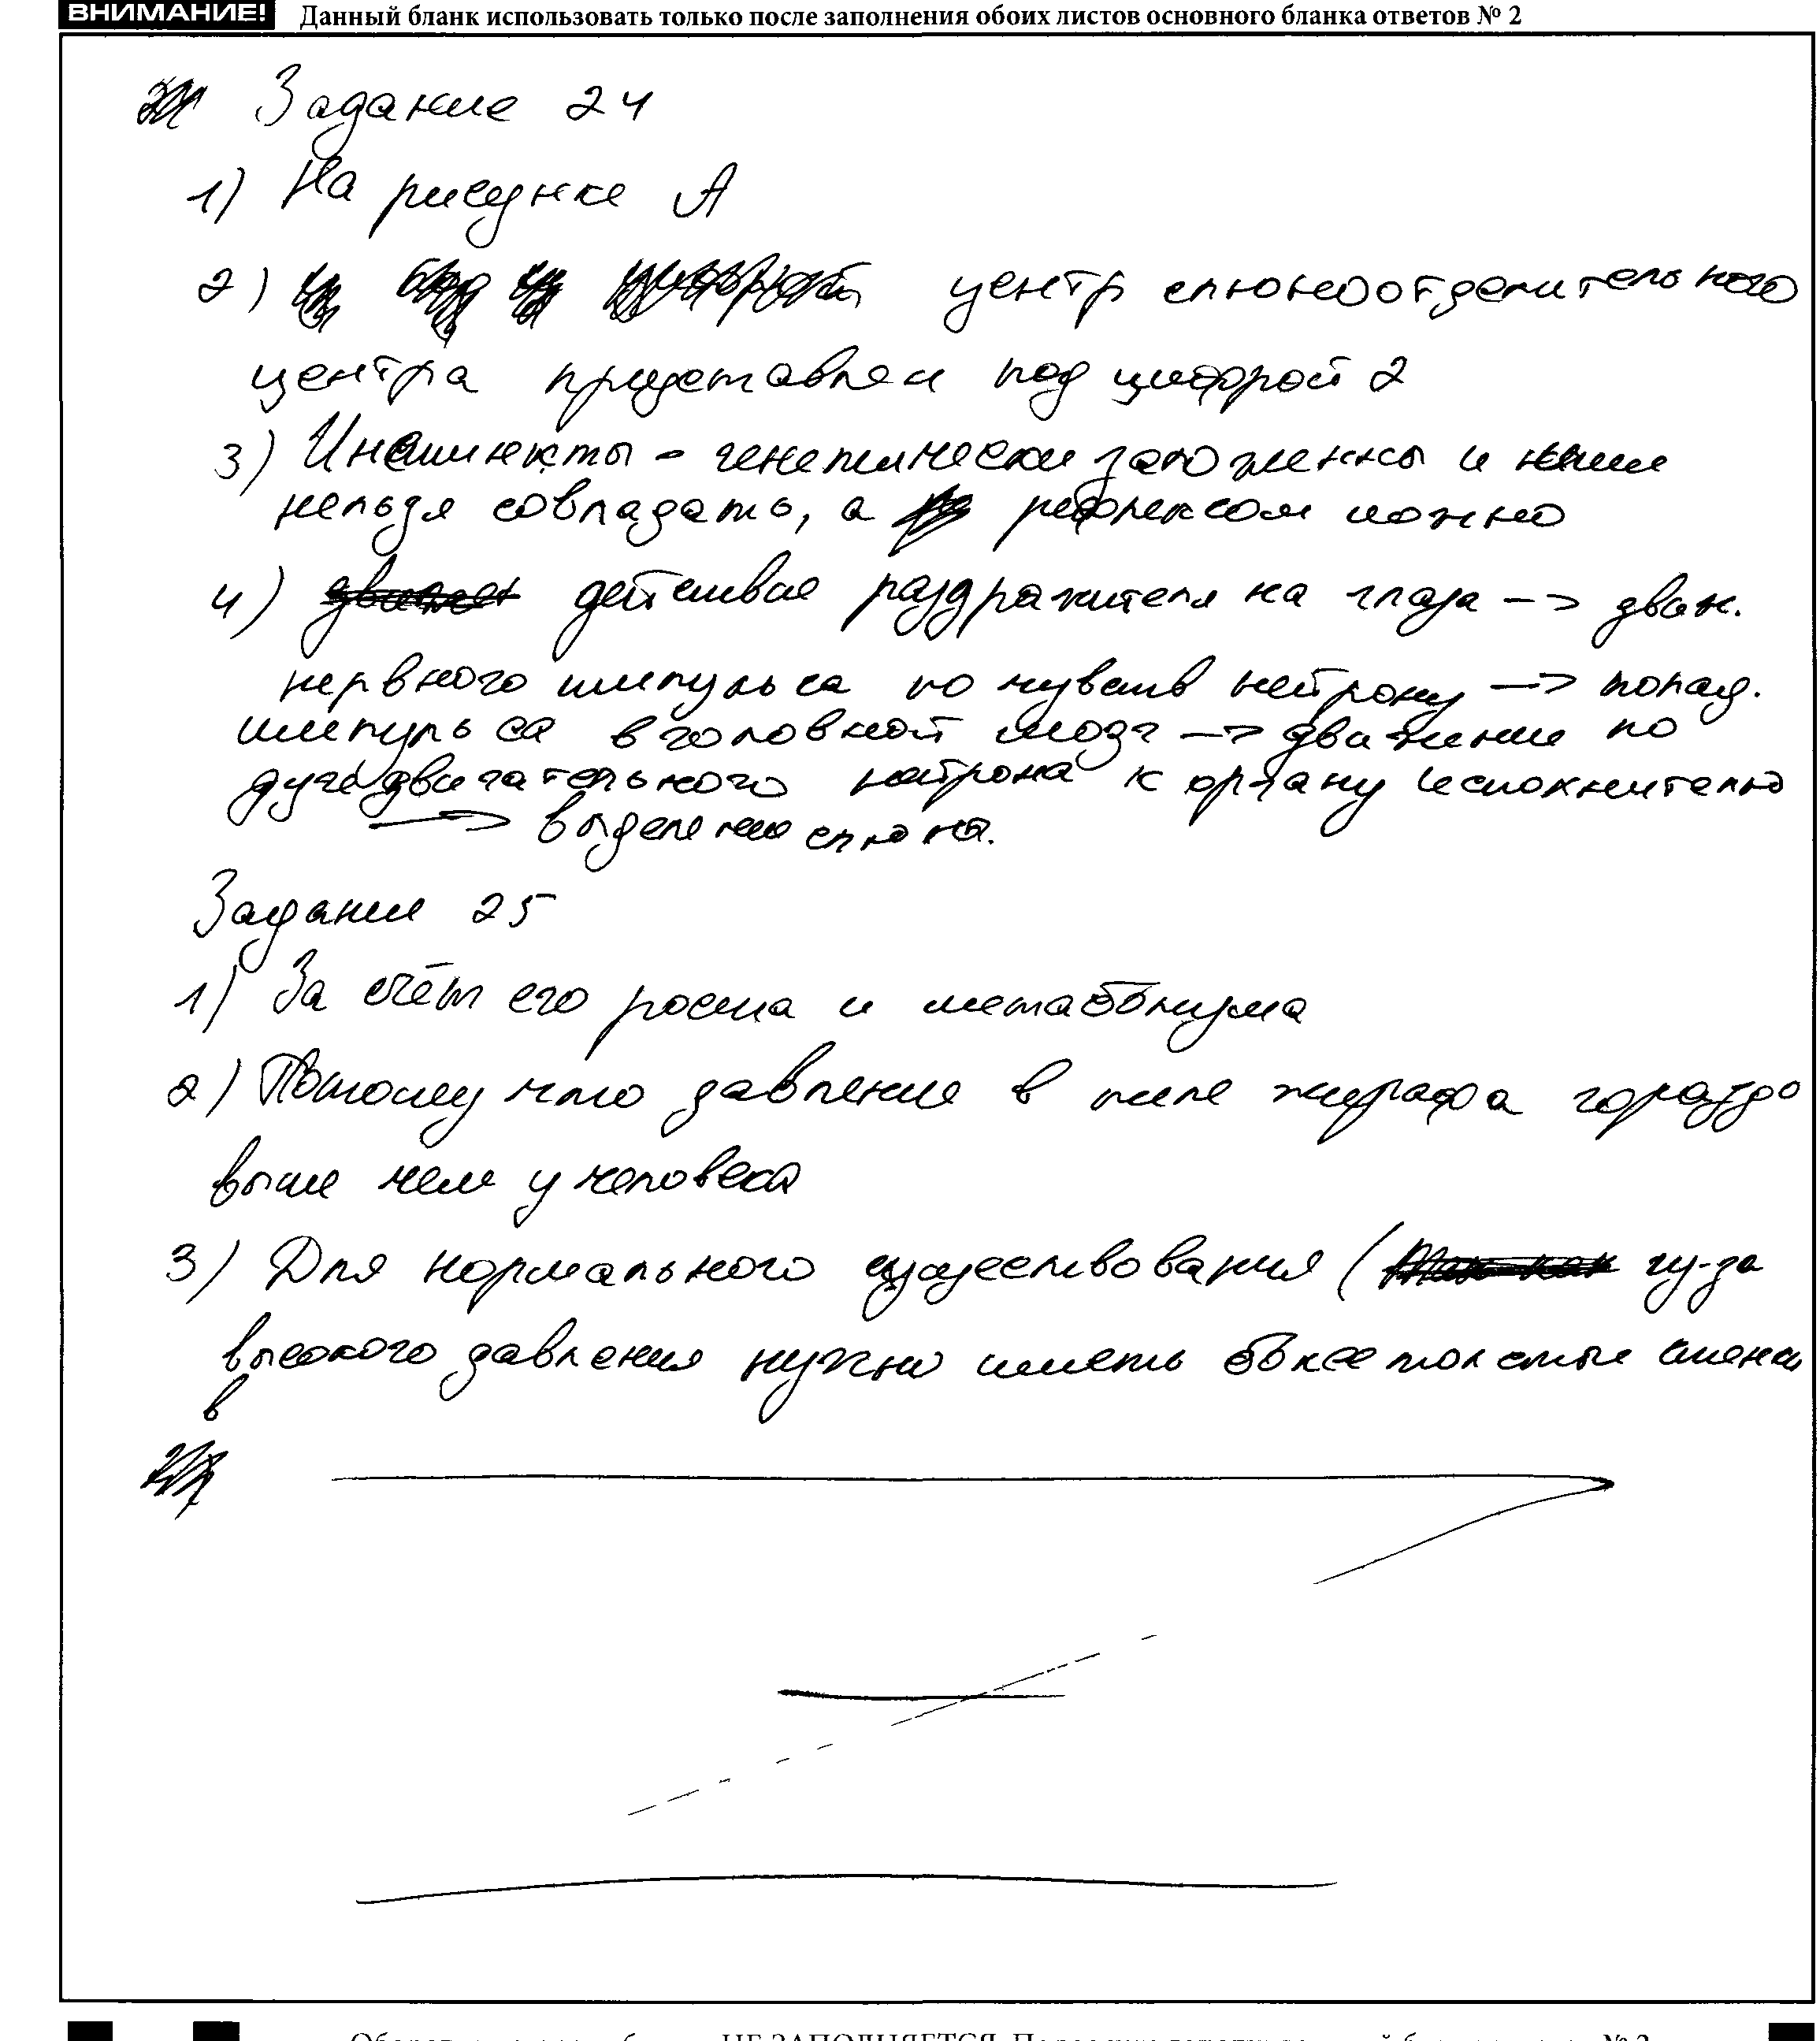 ВНИМАНИЕ! Данный бланк использовать только после заполнения обоих листов основного бланка ответов № 2
Задание 24
1) На рисунке А
2) центр слюноотделительного
центра представлен под цифрой 2
3) Инстинкты - генетически заложенны и ними
нельзя совладать, а рефлексом можно
4) действие раздражителя на глаза --> движ.
нервного импульса по чувств нейрону --> попад.
импульса в головной мозг --> движение по
дуге двигательного нейрона к органу
--> выделению слюна.
Задание 25
1) За счёт его роста и метаболизма
2) Потому что давление в теле жирафа гораздо
выше чем у человека
3) Для нормального существования ( из-за
высокого давления нужно иметь более толстые стенки
в
НЕ ЗАПОЛНЯЕТСЯ